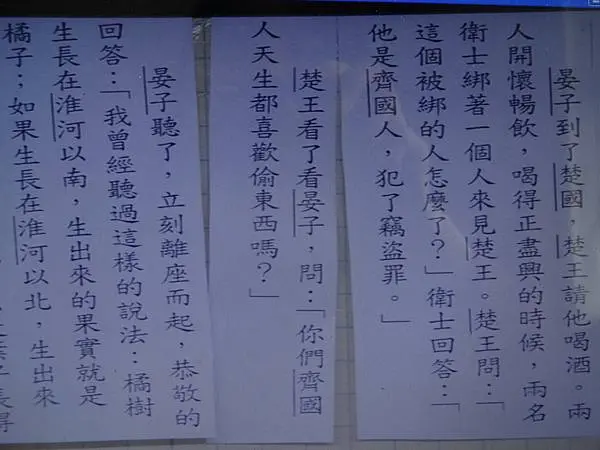 晏子到了楚國，楚王請他喝酒。兩
人開懷暢飲，喝得正盡興的時候，兩名
衛士綁著一個人來見楚王。楚王問：「
這個被綁的人怎麼了？」衛士回答：「
他是齊國人，犯了竊盜罪。」
楚王看了看晏子，問：「你們齊國
人天生都喜歡偷東西嗎？」
晏子聽了，立刻離座而起，恭敬的
回答：「我曾經聽過這樣的說法：橘樹
生長在淮河以南，生出來的果實就是
橘子；如果生長在淮河以北，生出來